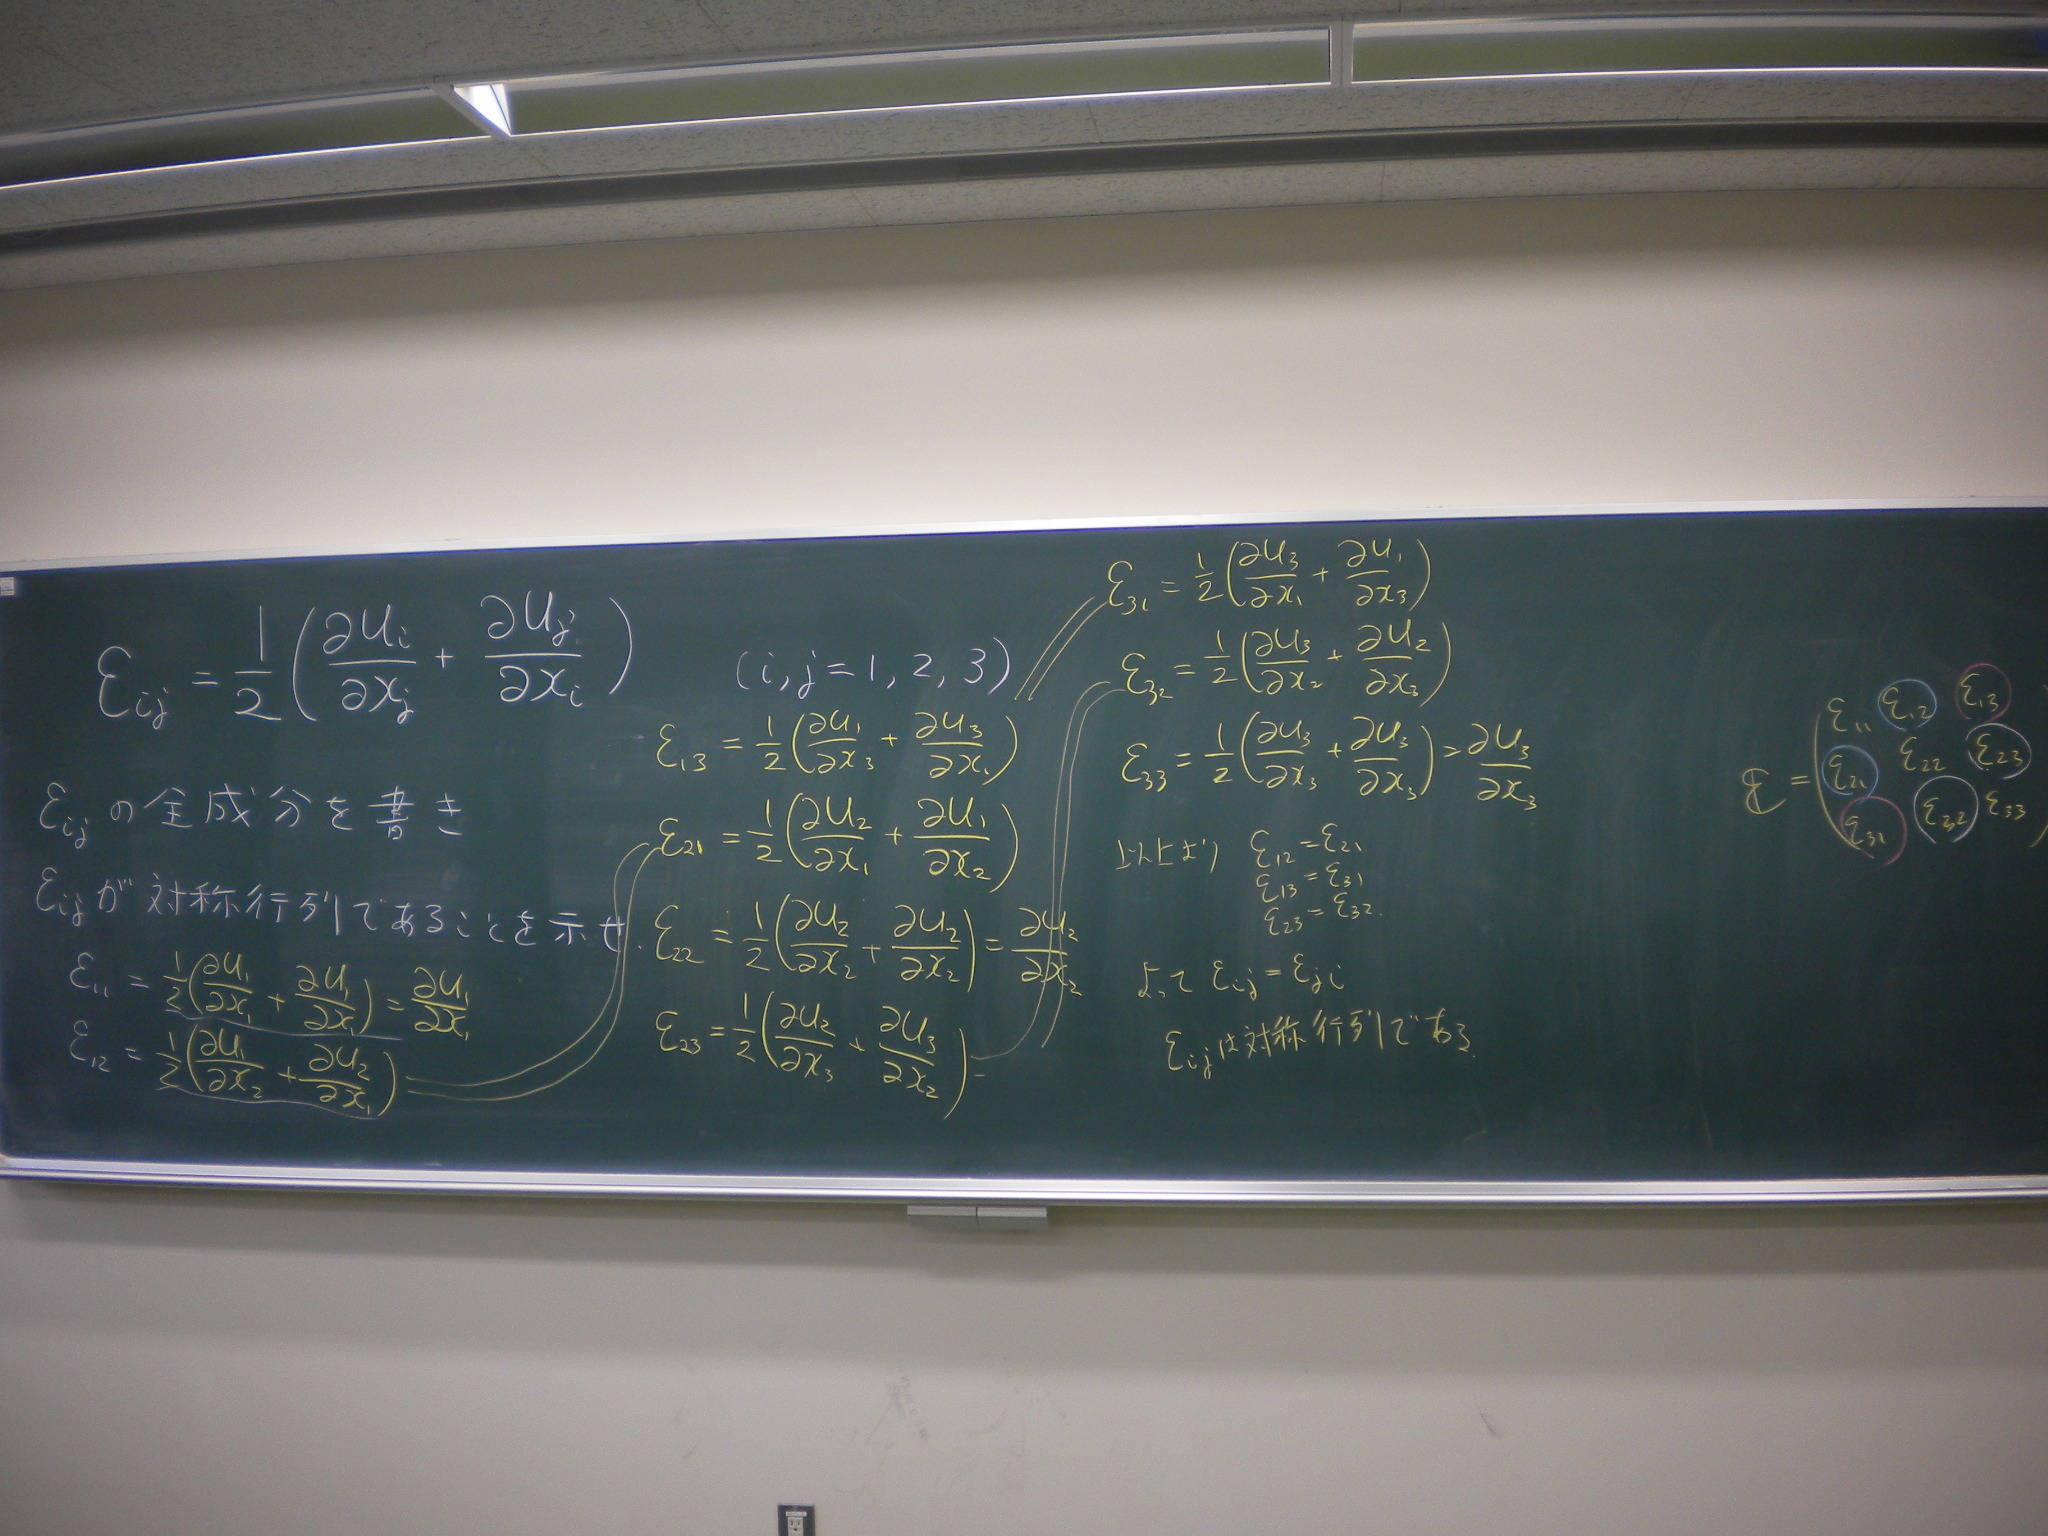 εij = 1/2 (∂ui/∂xj + ∂uj/∂xi) (i, j = 1, 2, 3)
εijの全成分を書き
εijが対称行列であることを示せ.
ε11 = 1/2 (∂u1/∂x1 + ∂u1/∂x1) = ∂u1/∂x1
ε12 = 1/2 (∂u1/∂x2 + ∂u2/∂x1)
ε13 = 1/2 (∂u1/∂x3 + ∂u3/∂x1)
ε21 = 1/2 (∂u2/∂x1 + ∂u1/∂x2)
ε22 = 1/2 (∂u2/∂x2 + ∂u2/∂x2) = ∂u2/∂x2
ε23 = 1/2 (∂u2/∂x3 + ∂u3/∂x2)
ε31 = 1/2 (∂u3/∂x1 + ∂u1/∂x3)
ε32 = 1/2 (∂u3/∂x2 + ∂u2/∂x3)
ε33 = 1/2 (∂u3/∂x3 + ∂u3/∂x3) = ∂u3/∂x3
以上より ε12 = ε21
ε13 = ε31
ε23 = ε32.
よって εij = εji
εijは対称行列である.
ε11 ε12 ε13
ε = ε21 ε22 ε23
ε31 ε32 ε33